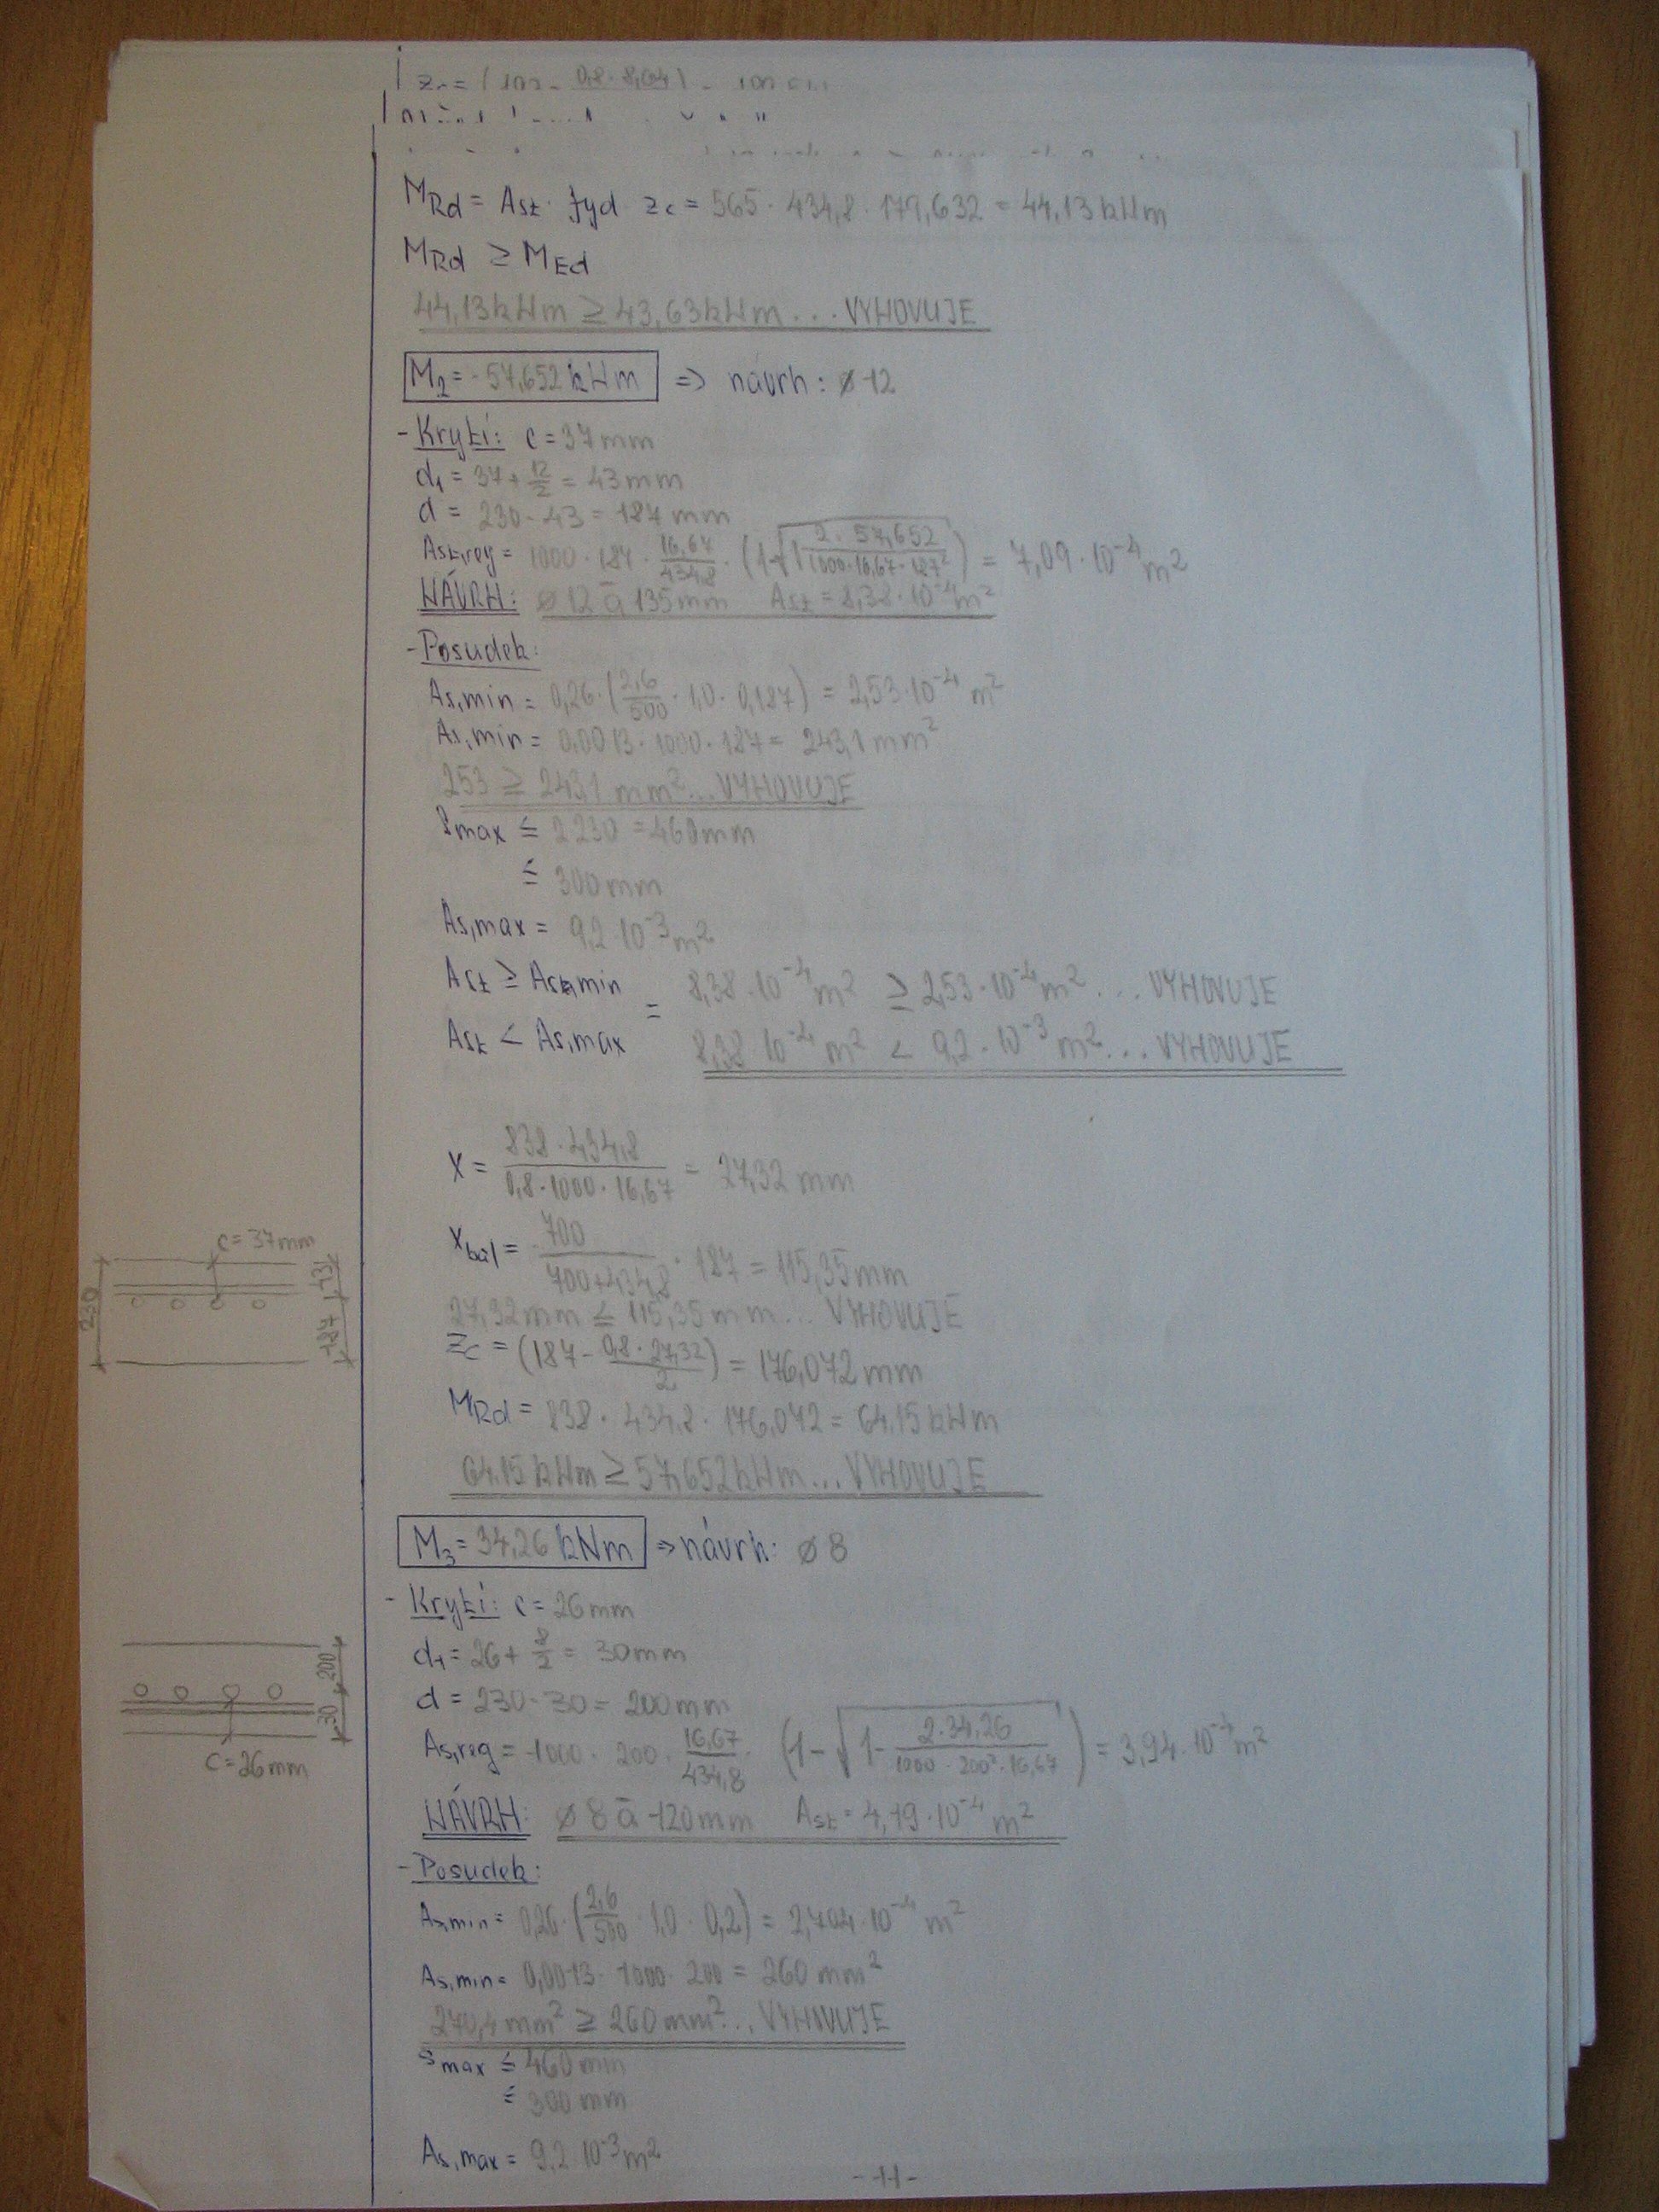 zc = (   - 0,8 · 8,04) =
MRd = Ast · fyd · zc = 565 · 434,8 · 179,632 = 44,13 kNm
MRd ≥ MEd
44,13 kNm ≥ 43,63 kNm ... VYHOVUJE
M2 = -57,652 kNm => návrh: ø 12
- Krytí: c = 37 mm
d1 = 37 + 12/2 = 43 mm
d = 230 - 43 = 187 mm
Ast,req = 1000 · 187 · 16,67/434,8 · (1-√(1 - 2 · 57,652/(1000 · 16,67 · 187²))) = 7,09 · 10⁻⁴ m²
NÁVRH: ø 12 á 135 mm Ast = 8,38 · 10⁻⁴ m²
- Posudek:
As,min = 0,26 · (2,6/500 · 1,0 · 0,187) = 2,53 · 10⁻⁴ m²
As,min = 0,0013 · 1000 · 187 = 243,1 mm²
253 ≥ 243,1 mm² ... VYHOVUJE
smax ≤ 2 · 230 = 460 mm
≤ 300 mm
As,max = 9,2 · 10⁻³ m²
Ast ≥ Ast,min = 8,38 · 10⁻⁴ m² ≥ 2,53 · 10⁻⁴ m² ... VYHOVUJE
Ast < As,max 8,38 · 10⁻⁴ m² < 9,2 · 10⁻³ m² ... VYHOVUJE
x = 838 · 434,8/(0,8 · 1000 · 16,67) = 27,32 mm
xbal = 700/(700 + 434,8) · 187 = 115,35 mm
27,32 mm ≤ 115,35 mm ... VYHOVUJE
zc = (187 - 0,8 · 27,32/2) = 176,072 mm
MRd = 838 · 434,8 · 176,072 = 64,15 kNm
64,15 kNm ≥ 57,652 kNm ... VYHOVUJE
c = 37 mm
230
43
187
M3 = 34,26 kNm => návrh: ø 8
- Krytí: c = 26 mm
d1 = 26 + 8/2 = 30 mm
d = 230 - 30 = 200 mm
As,req = 1000 · 200 · 16,67/434,8 · (1 - √(1 - 2 · 34,26/(1000 · 200² · 16,67))) = 3,94 · 10⁻⁴ m²
NÁVRH: ø 8 á 120 mm Ast = 4,19 · 10⁻⁴ m²
200
30
c = 26 mm
- Posudek:
As,min = 0,26 · (2,6/500 · 1,0 · 0,2) = 2,704 · 10⁻⁴ m²
As,min = 0,0013 · 1000 · 200 = 260 mm²
270,4 mm² ≥ 260 mm² ... VYHOVUJE
smax ≤ 460 mm
≤ 300 mm
As,max = 9,2 · 10⁻³ m²
- 11 -